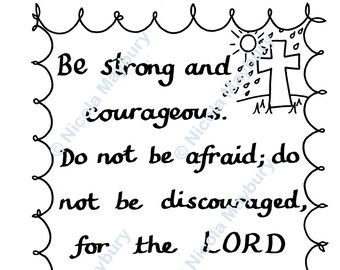 Be strong and
courageous.
Do not be afraid; do
not be discouraged,
for the LORD
© Nicola Maybury
© Nicola Maybury
© Nicola Maybury